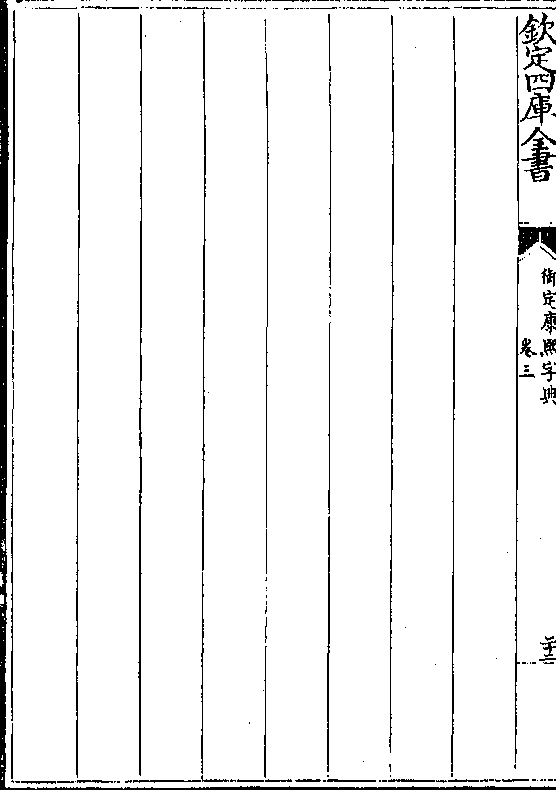 欽定四庫全書
御定康熙字典
卷三
二十二